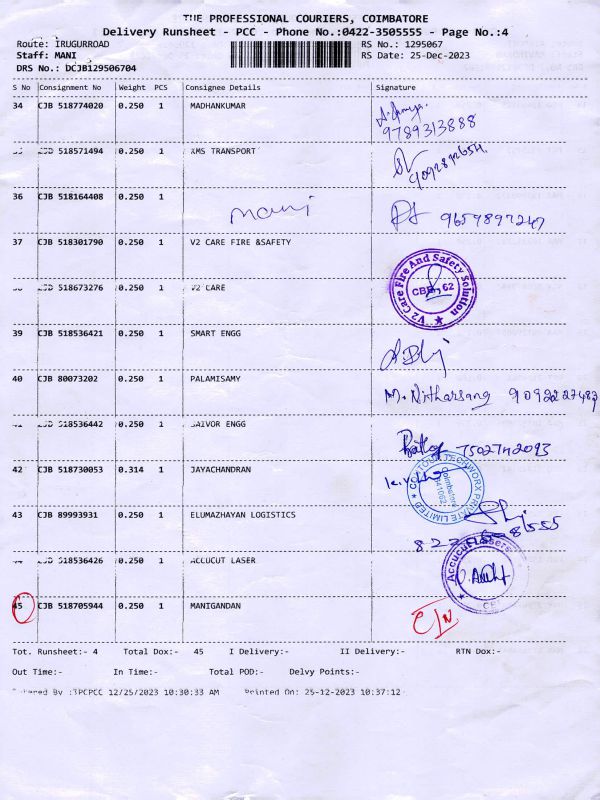 THE PROFESSIONAL COURIERS, COIMBATORE
Delivery Runsheet - PCC - Phone No.:0422-3505555 - Page No.:4
Route: IRUGURROAD RS No.: 1295067
Staff: MANI RS Date: 25-Dec-2023
DRS No.: DCJB129506704
S No Consignment No Weight PCS Consignee Details Signature
34 CJB 518774020 0.250 1 MADHANKUMAR
9789313888
518571494 0.250 1 KMS TRANSPORT
9092892654
36 CJB 518164408 0.250 1 mani 9659897247
37 CJB 518301790 0.250 1 V2 CARE FIRE &SAFETY
V2 Care Fire And Safety Solution
518673276 0.250 1 V2 CARE
39 CJB 518536421 0.250 1 SMART ENGG
40 CJB 80073202 0.250 1 PALAMISAMY
9092227487
518536442 0.250 1 SAIVOR ENGG
7502742093
42 CJB 518730053 0.314 1 JAYACHANDRAN
PRIVATE LIMITED
Coimbatore
43 CJB 89993931 0.250 1 ELUMAZHAYAN LOGISTICS
518536426 0.250 1 ACCUCUT LASER
Accucut Lasers
45 CJB 518705944 0.250 1 MANIGANDAN
Tot. Runsheet:- 4 Total Dox:- 45 I Delivery:- II Delivery:- RTN Dox:-
Out Time:- In Time:- Total POD:- Delvy Points:-
By :TPCPCC 12/25/2023 10:30:33 AM Printed On: 25-12-2023 10:37:12